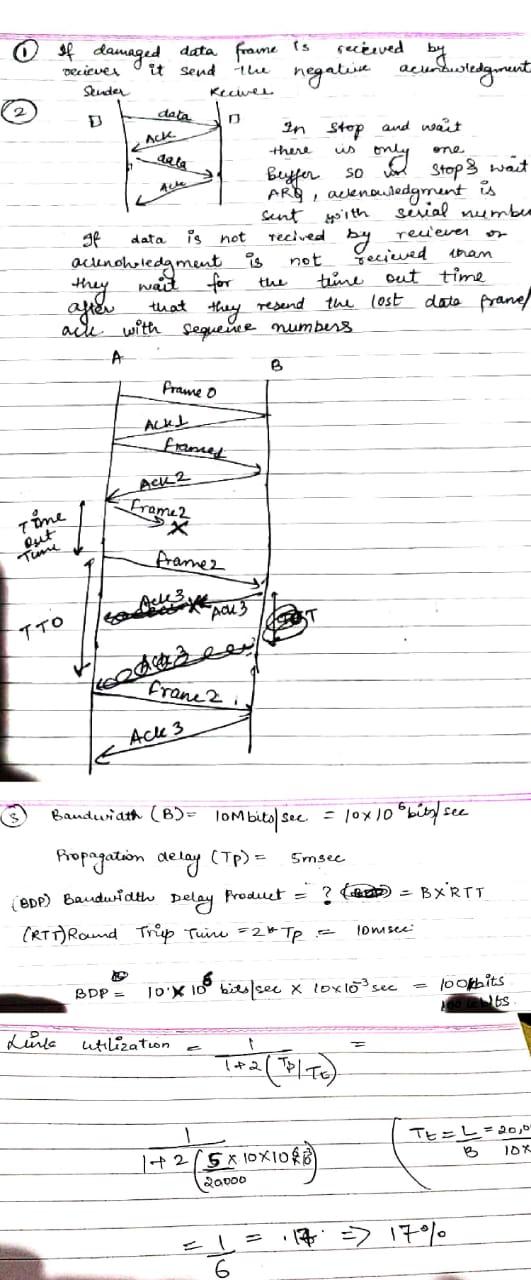 ① If damaged data frame is received by
reciever it send the negative acunowledgment
Sender Reciver
② data
D D
ACK
data
Ack
In stop and wait
there is only one
Buffer so in stop & wait
ARQ, acknowledgment is
sent with serial number
If data is not recived by reciever or
acunowledgment is not recieved than
they wait for the time out time
after that they resend the lost data frame/
ack with sequence numbers
A B
Frame 0
Ack 1
Frame 1
Ack 2
Time Out Time
Frame 2
Frame 2
Ack 3
Ack 3
TTO
Ack 3
Frame 2
Ack 3
③ Bandwidth (B) = 10Mbits/sec = 10×10⁶ bits/sec
Propagation delay (Tp) = 5msec
(BDP) Bandwidth Delay Product = ? = B×RTT
(RTT) Round Trip Time = 2*Tp = 10msec
BDP = 10×10⁶ bits/sec × 10×10⁻³ sec = 100kbits
Link utilization = 1 / 1+2(Tp/Tt) =
1 / 1+2(5×10×10 / 20000)
(Tt = L/B = 20,0 / 10×
= 1/6 = .17 => 17%